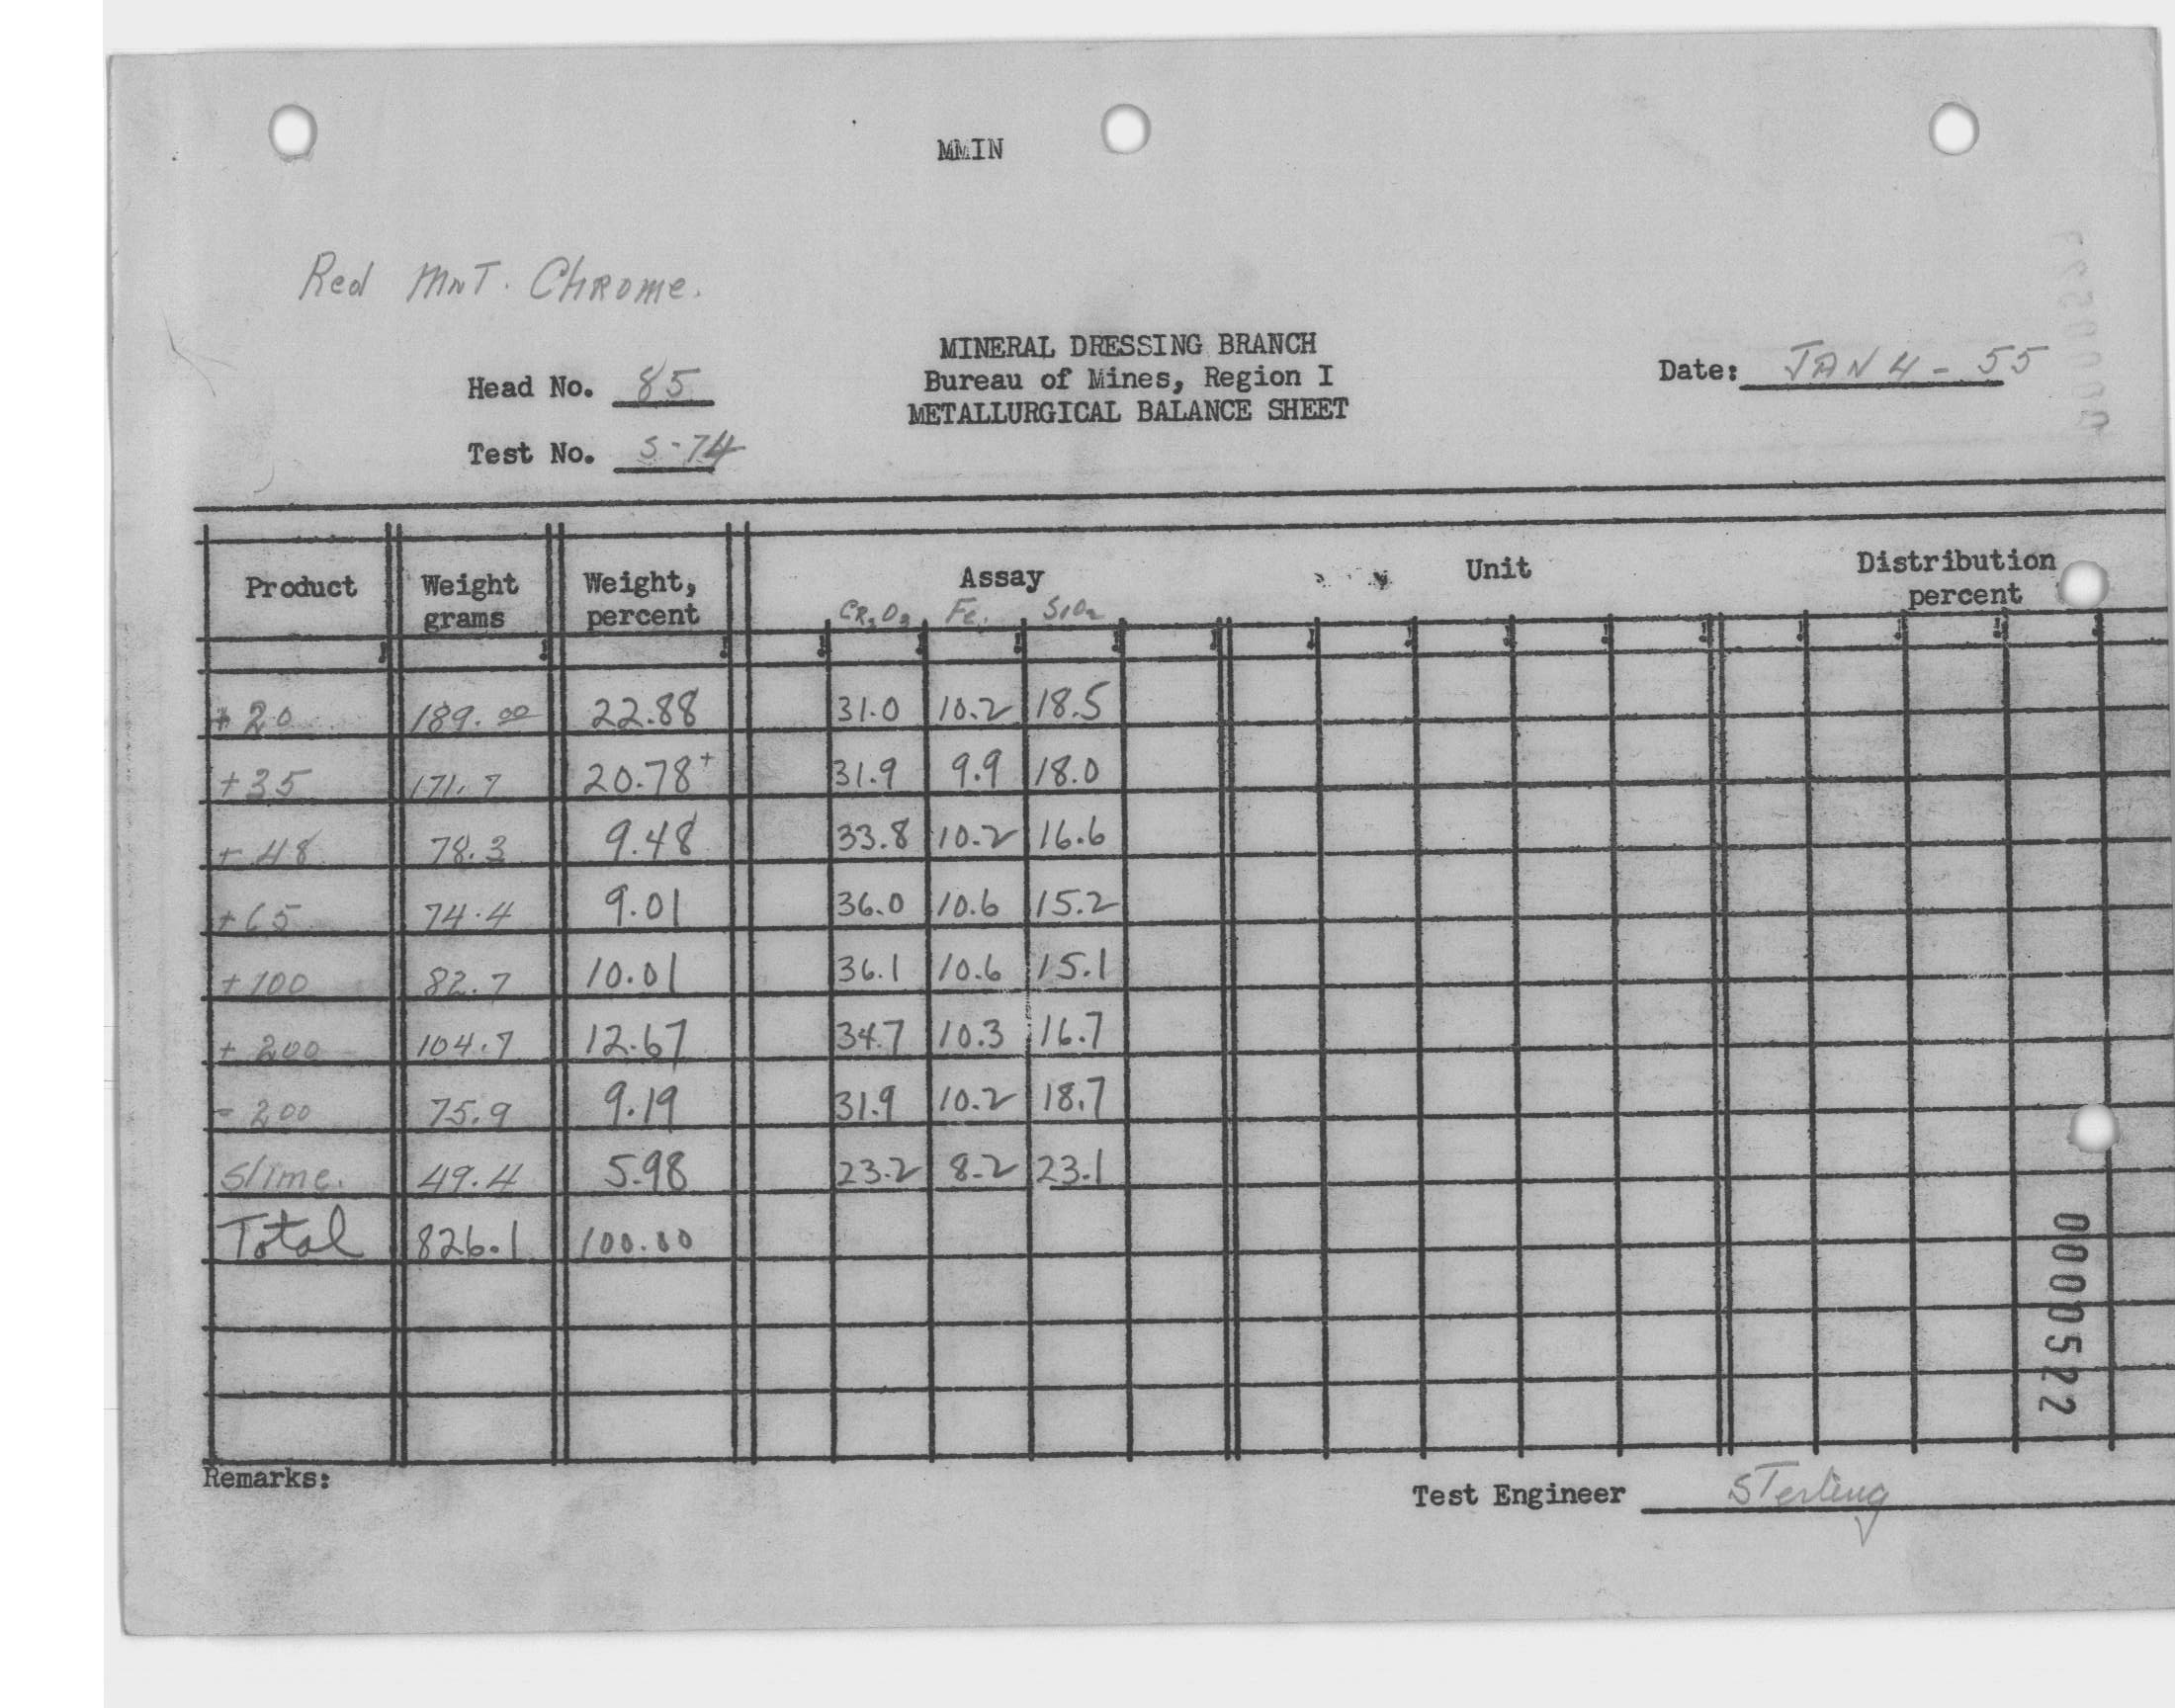 MMIN
Red MnT. Chrome.
MINERAL DRESSING BRANCH
Bureau of Mines, Region I
METALLURGICAL BALANCE SHEET
Head No. 85
Date: JAN 4 - 55
Test No. S-74
Product Weight grams Weight, percent Assay Unit Distribution percent
Cr2O3 Fe. SiO2
+20 189.00 22.88 31.0 10.2 18.5
+35 171.7 20.78+ 31.9 9.9 18.0
+48 78.3 9.48 33.8 10.2 16.6
+65 74.4 9.01 36.0 10.6 15.2
+100 82.7 10.01 36.1 10.6 15.1
+200 104.7 12.67 34.7 10.3 16.7
-200 75.9 9.19 31.9 10.2 18.7
Slime. 49.4 5.98 23.2 8.2 23.1
Total 826.1 100.00
0000522
Remarks:
Test Engineer Sterling